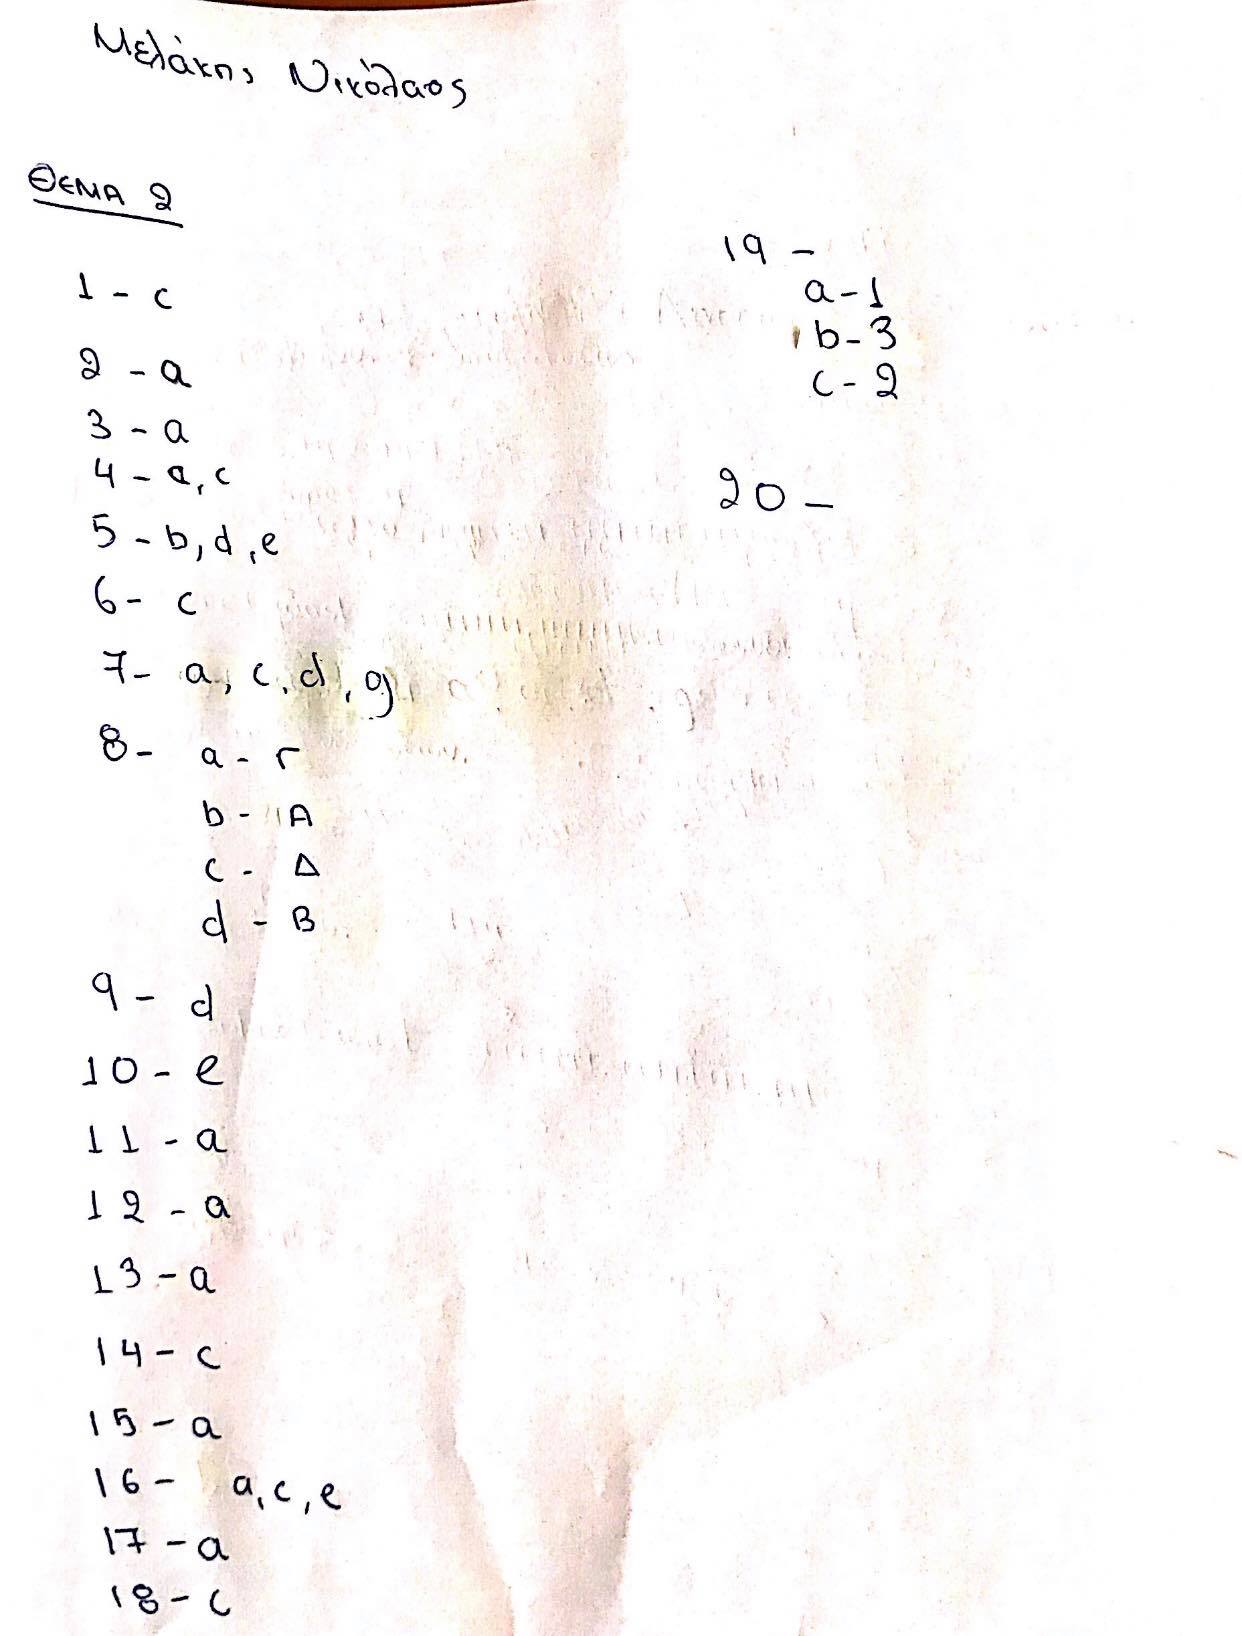 Μελάκης Νικόλαος
ΘΕΜΑ 2
1 - c
2 - a
3 - a
4 - a, c
5 - b, d, e
6 - c
7 - a, c, d, g
8 - a - Γ
b - A
c - Δ
d - B
9 - d
10 - e
11 - a
12 - a
13 - a
14 - c
15 - a
16 - a, c, e
17 - a
18 - c
19 -
a - 1
b - 3
c - 2
20 -